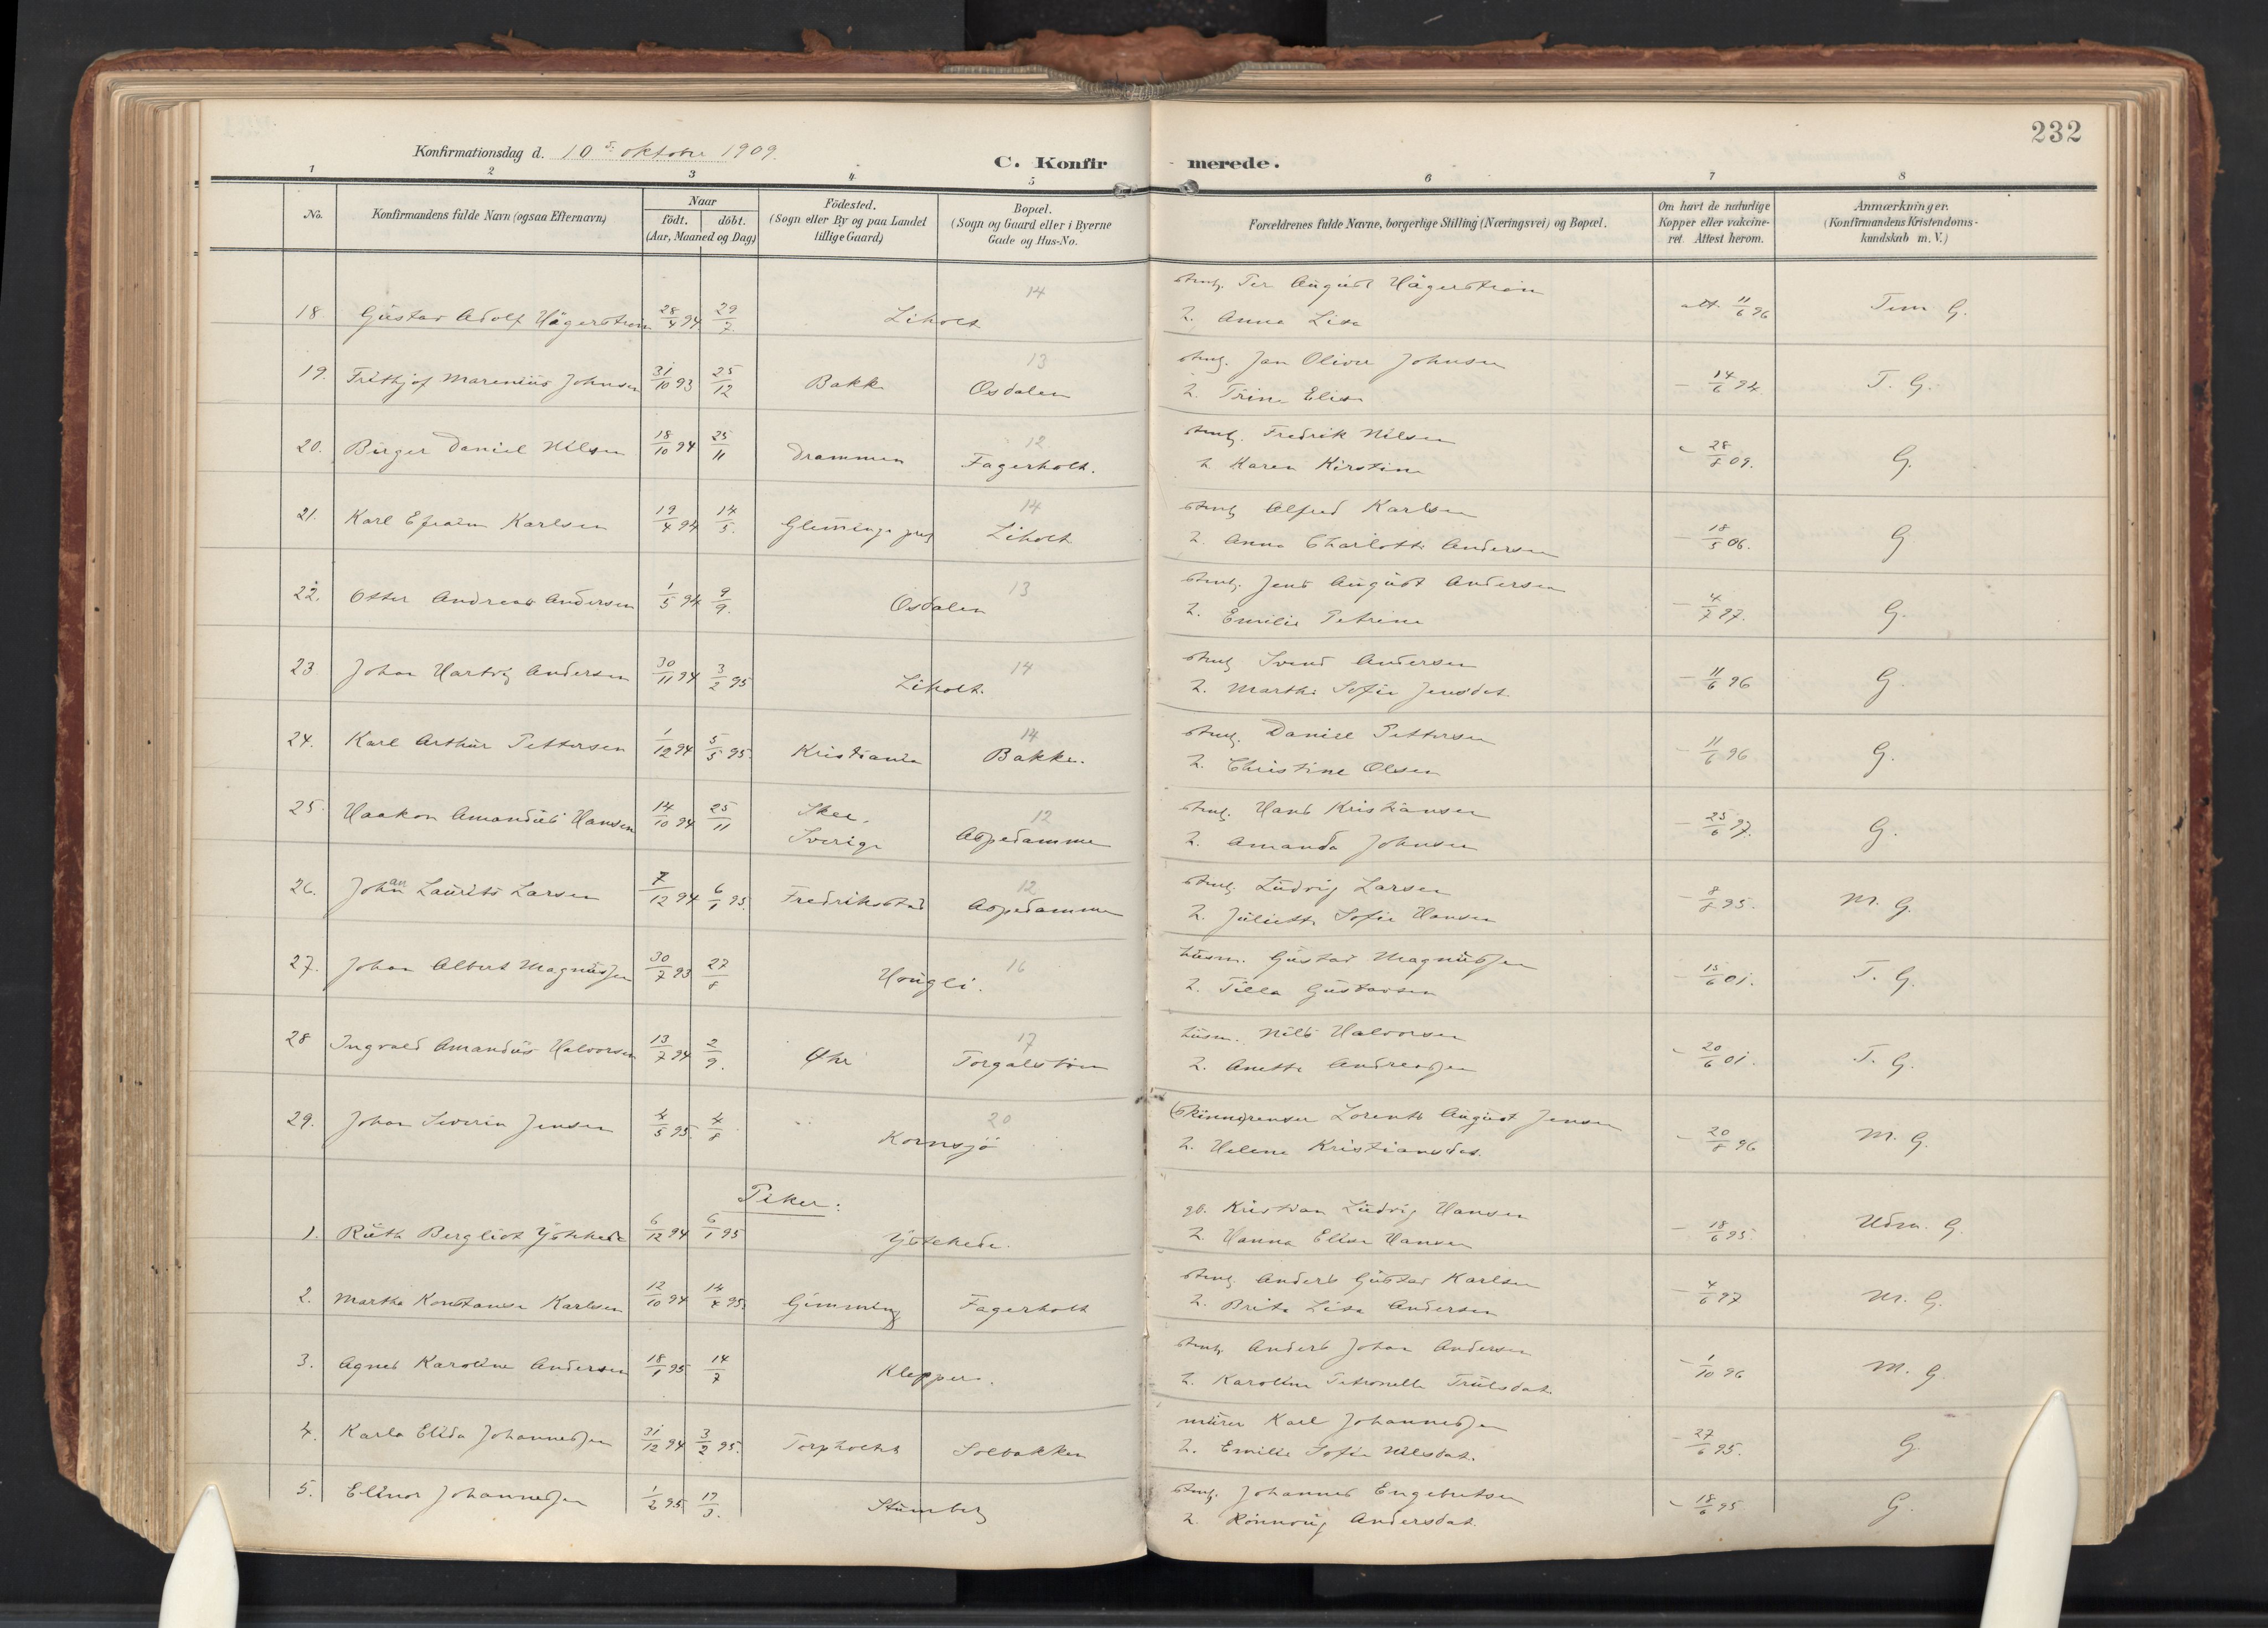 232
Konfirmationsdag d. 10 s. oktober 1909.
C. Konfirmerede.
1 2 3 4 5 6 7 8
No.
Konfirmandens fulde Navn (ogsaa Efternavn)
Naar
födt. döbt.
(Aar, Maaned og Dag)
Födested.
(Sogn eller By og paa Landet
tillige Gaard)
Bopæl.
(Sogn og Gaard eller i Byerne
Gade og Hus-No.
Forældrenes fulde Navne, borgerlige Stilling (Næringsvei) og Bopæl.
Om havt de naturlige
Kopper eller vakcine-
ret. Attest herom.
Anmærkninger.
(Konfirmandens Kristendoms-
kundskab m. V.)
14 Per August Hägerström
18. Gustav Adolf Hägerström 28/4 94 29/7. Liholt att. 11/6 96 Tem. G.
2. Anna Lisa
13 Jan Oliver Johnsen
19. Frithjof Marenius Johnsen 31/10 93 25/12 Bakke Osdalen – 14/6 94 T. G.
2. Trine Elise
12. Fredrik Nilsen
20. Birger Daniel Nilsen 18/10 94 25/11 Drammen Fagerholt. – 28/8 09. G.
2. Karen Kirstine
14 Alfred Karlsen
21. Karl Efraim Karlsen 19/4 94 14/5. Liholt – 18/5 06. G
2. Anna Charlotte Andersen
13 Jens August Andersen
22. Otter Andreas Andersen 1/5 94 9/9. Osdalen – 4/7 97. G.
2. Emilie Petrine
14 Svend Andersen
23 Johan Hartvig Andersen 30/11 94 3/2 95 Liholt. – 11/6 96 G.
2. Marthe Sofie Jensdat.
14 Daniel Pettersen
24. Karl Arthur Pettersen 1/12 94 5/5 95. Kristiania Bakke. – 11/6 96 G.
2. Christine Olsen
Skee. 12 Hans Kristiansen
25. Haakon Amandus Hansen 14/10 94 25/11 Sverige Aspedammen – 25/6 97. G.
2. Amanda Johnsen
12 Ludvig Larsen
26. Johan Laurits Larsen 7/12 94 6/1 95. Fredrikstad Aspedammen – 8/8 95. M. G.
2. Juliette Sofie Hansen
16 husm. Gustav Magnussen
27. Johan Albert Magnussen 30/7 93 27/8 Hougli. – 15/6 01. T. G.
2. Tilla Gustavsen
17 husm. Nils Halvorsen
28 Ingvald Amandus Halvorsen 13/7 94 2/9. Torgalsböen – 20/6 01. T. G.
2. Anette Andreassen
20 Lorents August Jensen
29. Johan Severin Jensen 4/5 95. 4/8 Kornsjö – 20/8 96 M. G.
2. Helene Kristiansdat.
Piker:
gb. Kristian Ludvig Hansen
1. Ruth Bergliot Ystehede 6/12 94 6/1 95 Ystehede. – 18/6 95. Udm. G.
2. Hanna Elise Hansen
Anders Gustav Karlsen
2. Martha Konstanse Karlsen 12/10 94 14/4 95. Fagerholt – 4/6 97 M. G.
2. Brita Lisa Andersen
Anders Johan Andersen
3. Agnes Karoline Andersen 18/1 95 14/7 Klepper. – 1/10 96 M. G
2. Karoline Petronelle Trulsdat.
murer Karl Johannessen
4. Karla Elida Johannessen 31/12 94 3/2 95. Torpholtet Solbakken – 27/6 95. G
2. Emilie Sofie Nilsdat.
Johannes Engebretsen
5. Elinor Johannessen 1/2 95 17/3. – 18/6 95 G.
2. Rönnoug Andersdat.